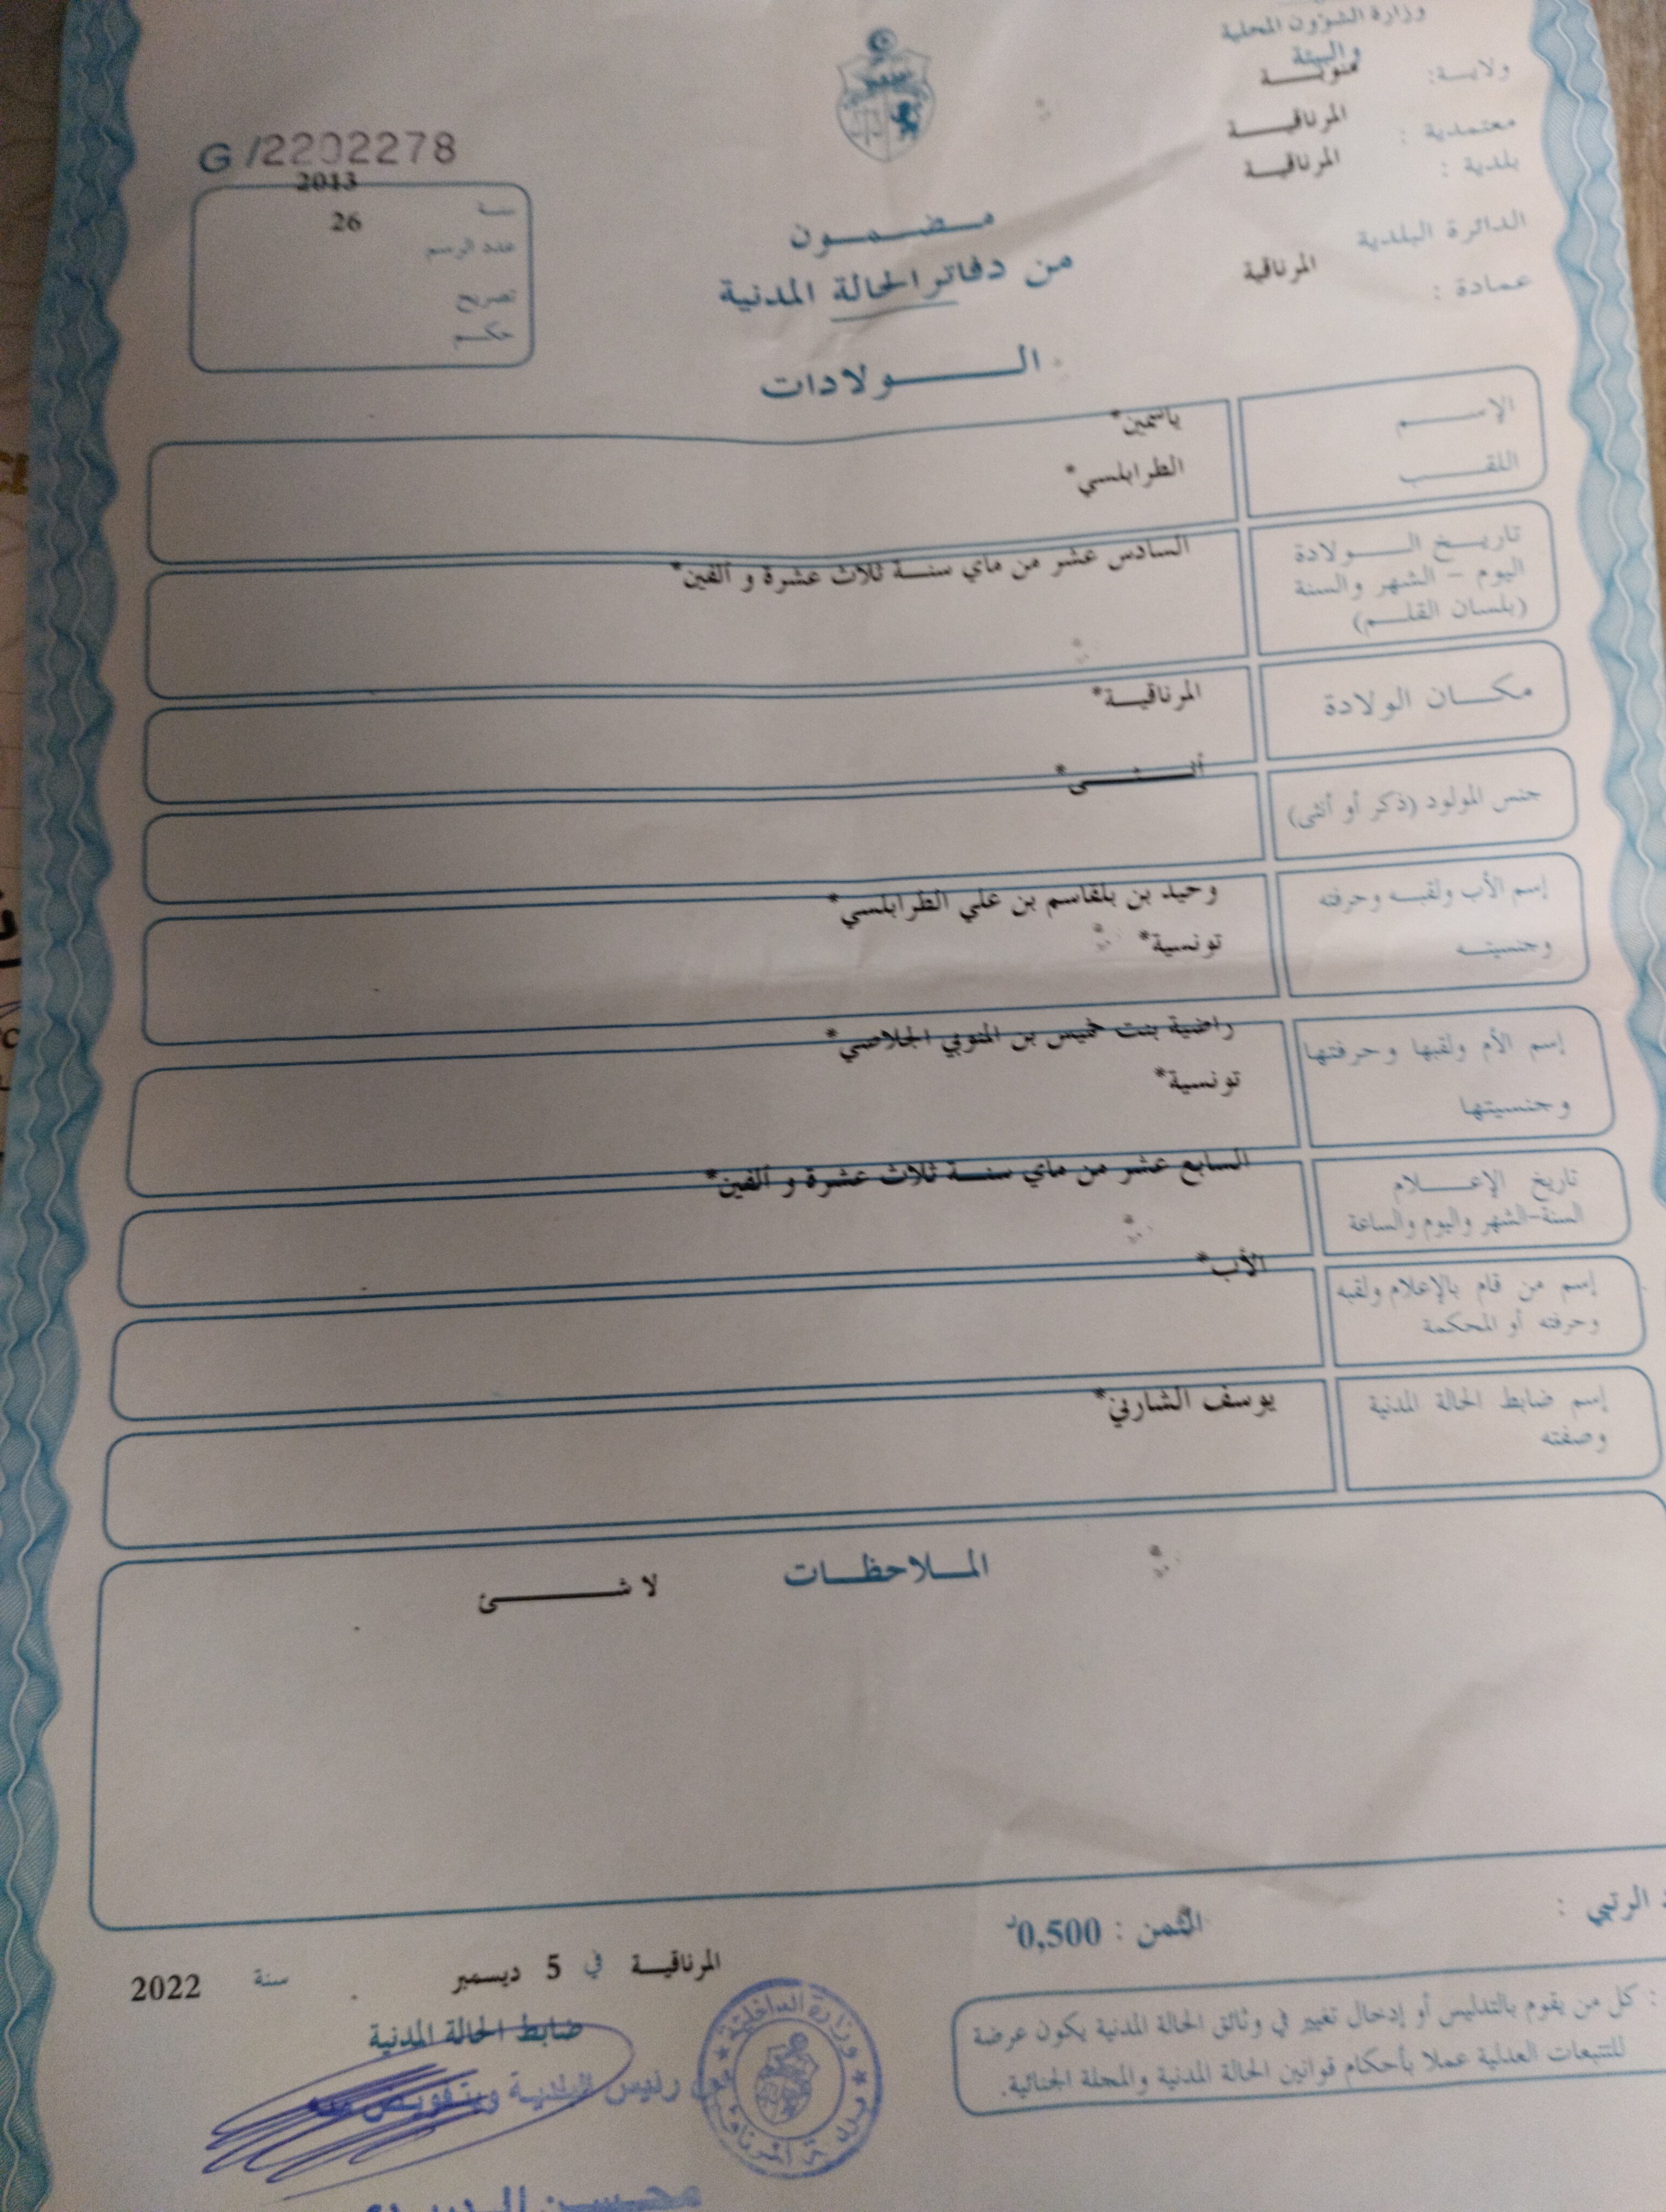 وزارة الشؤون المحلية
والبيئة
ولاية: منوبة
معتمدية : المرناقية
بلدية : المرناقية
الدائرة البلدية
عمادة : المرناقية
G /2202278
سنة 2013
عدد الرسم 26
تصريح
حكم
مضمون
من دفاتر الحالة المدنية
الولادات
الإسم ياسمين*
اللقب الطرابلسي*
تاريخ الولادة
اليوم - الشهر والسنة
(بلسان القلم)
السادس عشر من ماي سنة ثلاث عشرة و ألفين*
مكان الولادة المرناقية*
جنس المولود (ذكر أو أنثى) أنثى*
إسم الأب ولقبه وحرفته
وجنسيته
وحيد بن بلقاسم بن علي الطرابلسي*
تونسية*
إسم الأم ولقبها وحرفتها
وجنسيتها
راضية بنت خميس بن المنوبي الجلاصي*
تونسية*
تاريخ الإعلام
السنة-الشهر واليوم والساعة
السابع عشر من ماي سنة ثلاث عشرة و ألفين*
إسم من قام بالإعلام ولقبه
وحرفته أو المحكمة
الأب*
إسم ضابط الحالة المدنية
وصفته
يوسف الشارني*
الملاحظات
لا شئ
الرتبي :
الثمن : 0,500د
: كل من يقوم بالتدليس أو إدخال تغيير في وثائق الحالة المدنية يكون عرضة
للتتبعات العدلية عملا بأحكام قوانين الحالة المدنية والمجلة الجنائية.
المرناقية في 5 ديسمبر سنة 2022
ضابط الحالة المدنية
عن رئيس البلدية وبتفويض منه
وزارة الداخلية
بلدية المرناقية
محسن